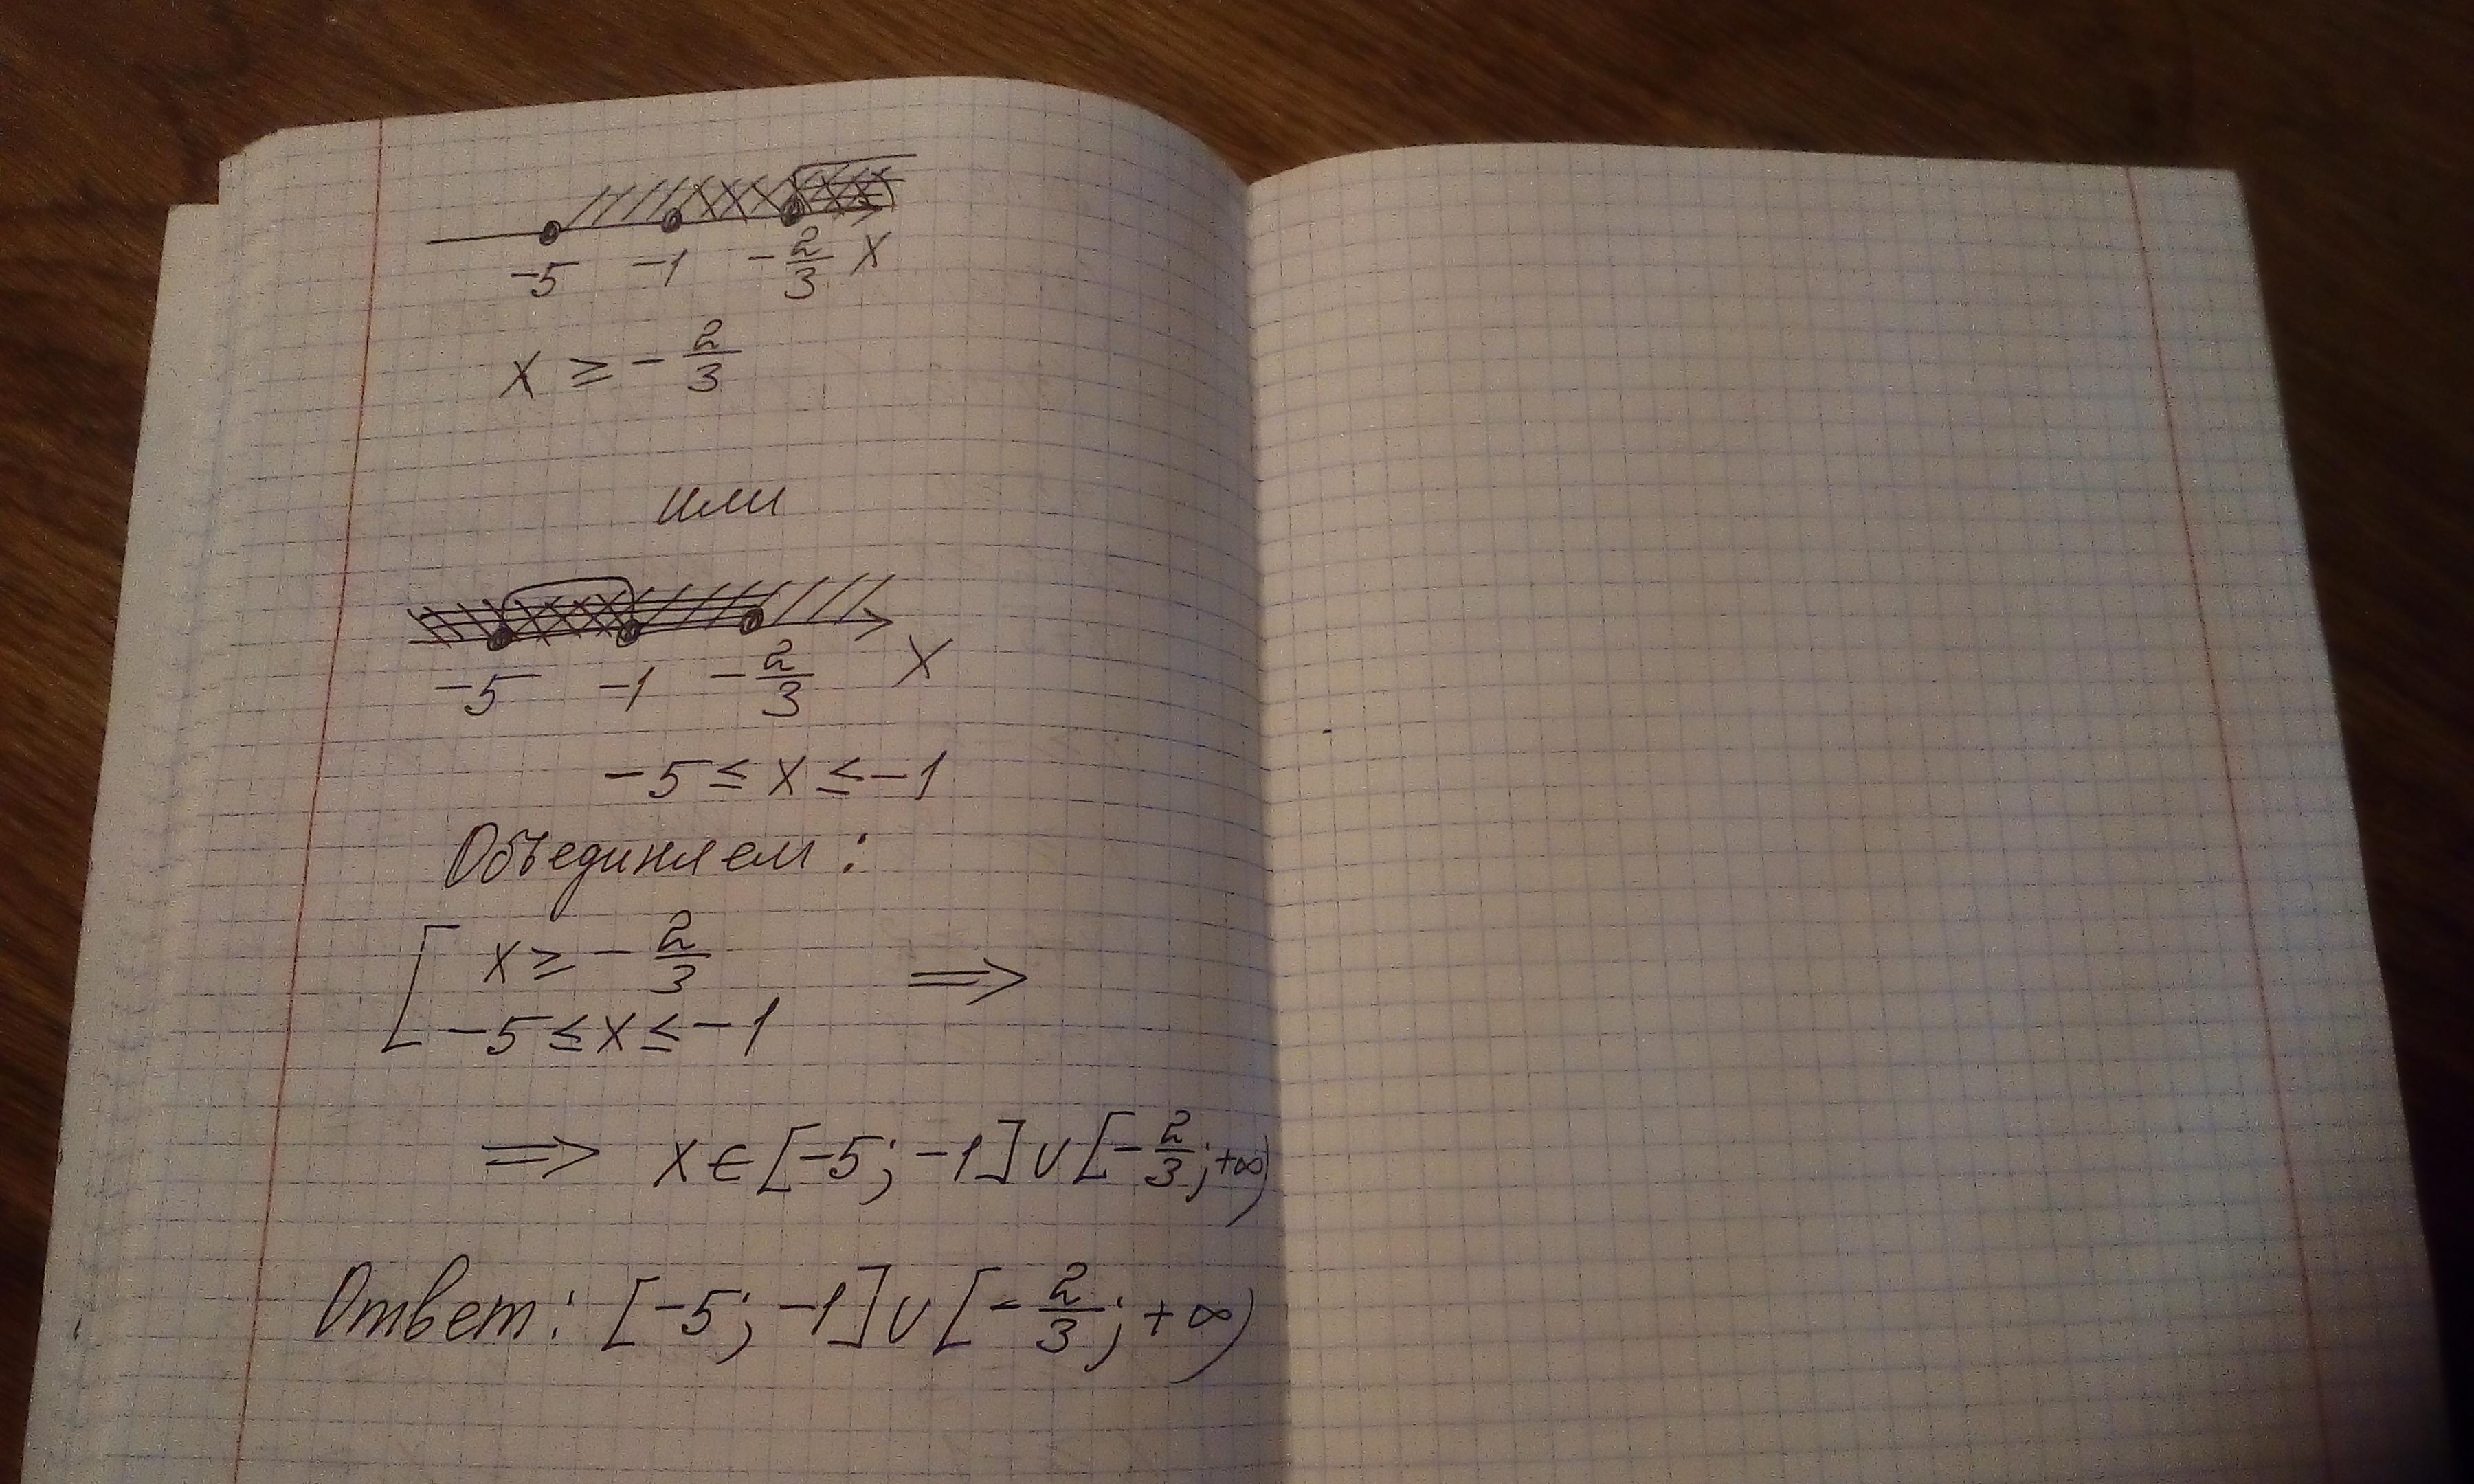 -5 -1 -2/3 x
x ≥ -2/3
или
-5 -1 -2/3 x
-5 ≤ x ≤ -1
Объединяем:
[ x ≥ -2/3 ⇒
-5 ≤ x ≤ -1
⇒ x ∈ [-5; -1] ∪ [-2/3; +∞)
Ответ: [-5; -1] ∪ [-2/3; +∞)